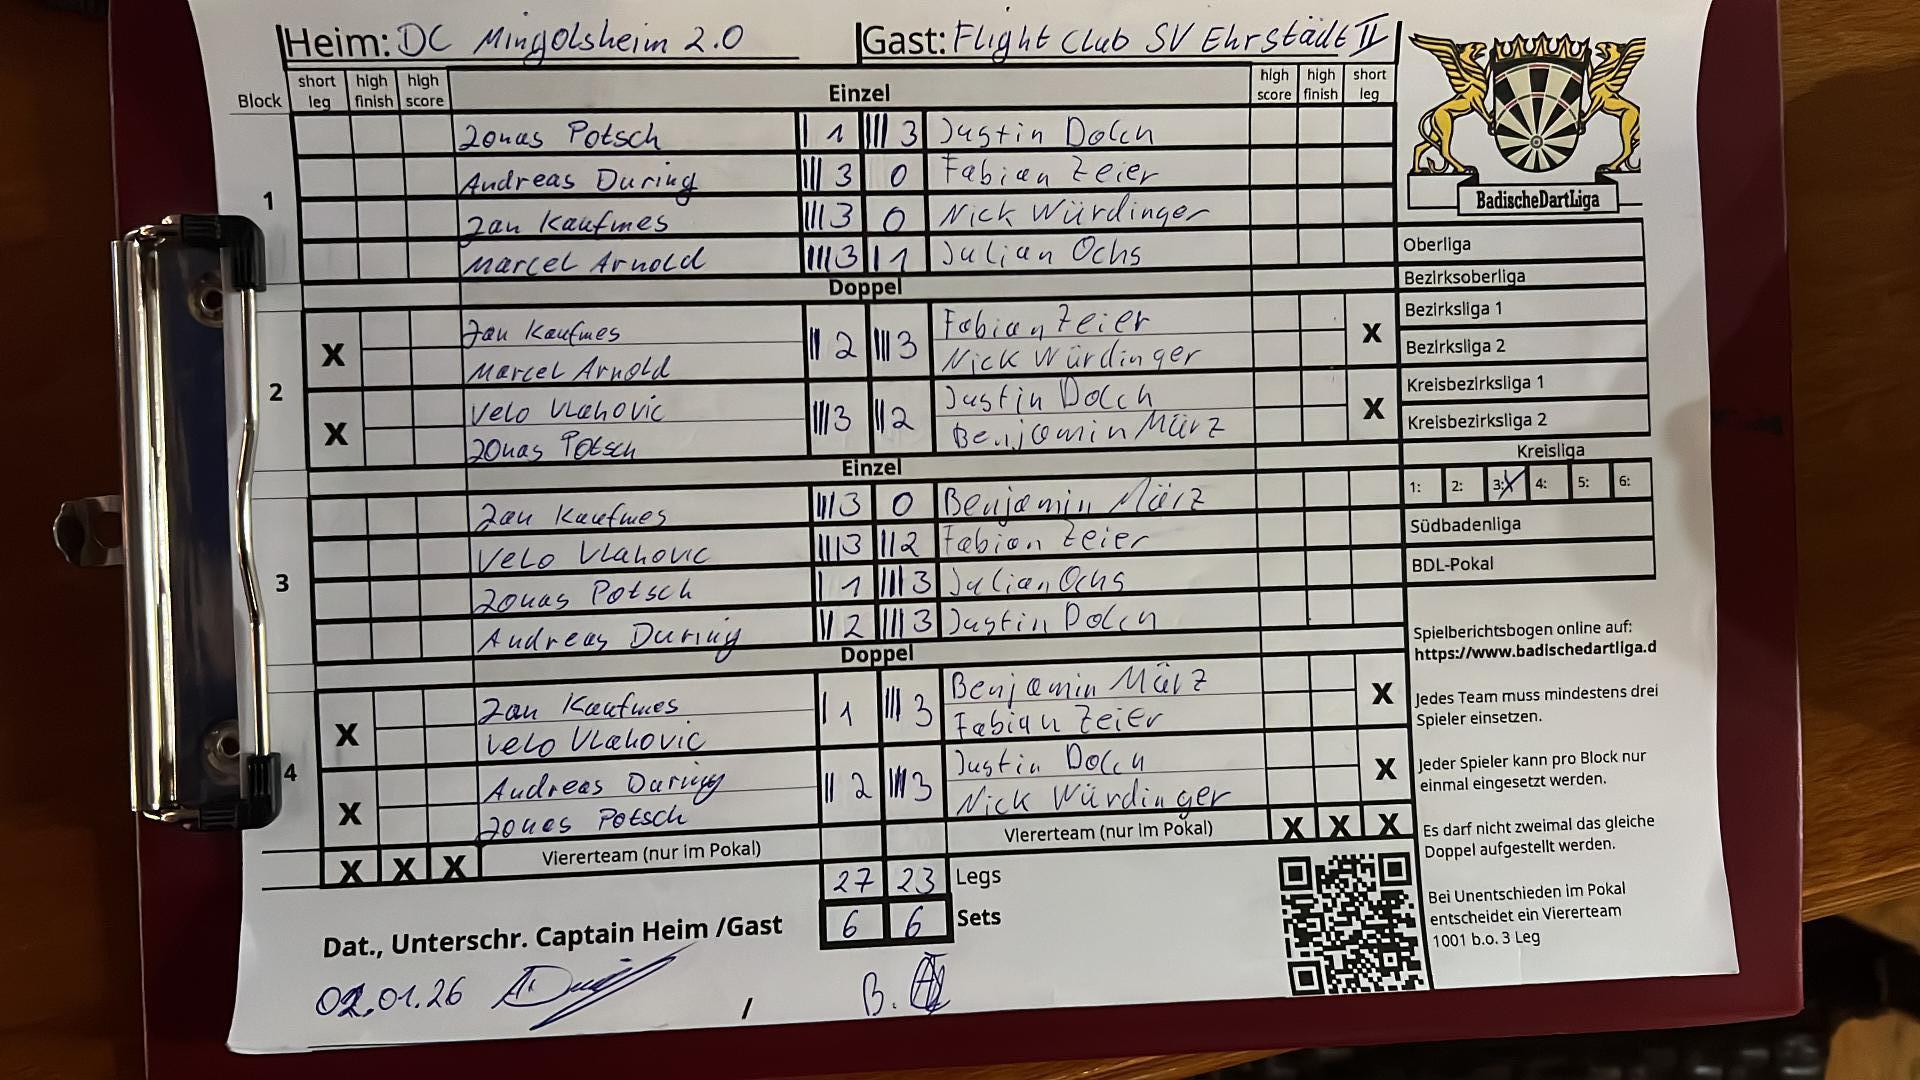 Heim: DC Mingolsheim 2.0 Gast: Flight Club SV Ehrstädt II
Block short leg high finish high score Einzel high score high finish short leg
1
Jonas Potsch 1 3 Justin Dolch
Andreas During 3 0 Fabian Zeier
Jan Kaufmes 3 0 Nick Würdinger
Marcel Arnold 3 1 Julian Ochs
Doppel
2
X Jan Kaufmes 2 3 Fabian Zeier X
Marcel Arnold Nick Würdinger
X Velo Vlahovic 3 2 Justin Dolch X
Jonas Potsch Benjamin März
Einzel
3
Jan Kaufmes 3 0 Benjamin März
Velo Vlahovic 3 2 Fabian Zeier
Jonas Potsch 1 3 Julian Ochs
Andreas During 2 3 Justin Dolch
Doppel
4
X Jan Kaufmes 1 3 Benjamin März X
Velo Vlahovic Fabian Zeier
X Andreas During 2 3 Justin Dolch X
Jonas Potsch Nick Würdinger
X X X Viererteam (nur im Pokal) Viererteam (nur im Pokal) X X X
27 23 Legs
6 6 Sets
Dat., Unterschr. Captain Heim /Gast
02.01.26 / B.
BadischeDartLiga
Oberliga
Bezirksoberliga
Bezirksliga 1
Bezirksliga 2
Kreisbezirksliga 1
Kreisbezirksliga 2
Kreisliga
1: 2: 3: X 4: 5: 6:
Südbadenliga
BDL-Pokal
Spielberichtsbogen online auf:
https://www.badischedartliga.d
Jedes Team muss mindestens drei
Spieler einsetzen.
Jeder Spieler kann pro Block nur
einmal eingesetzt werden.
Es darf nicht zweimal das gleiche
Doppel aufgestellt werden.
Bei Unentschieden im Pokal
entscheidet ein Viererteam
1001 b.o. 3 Leg